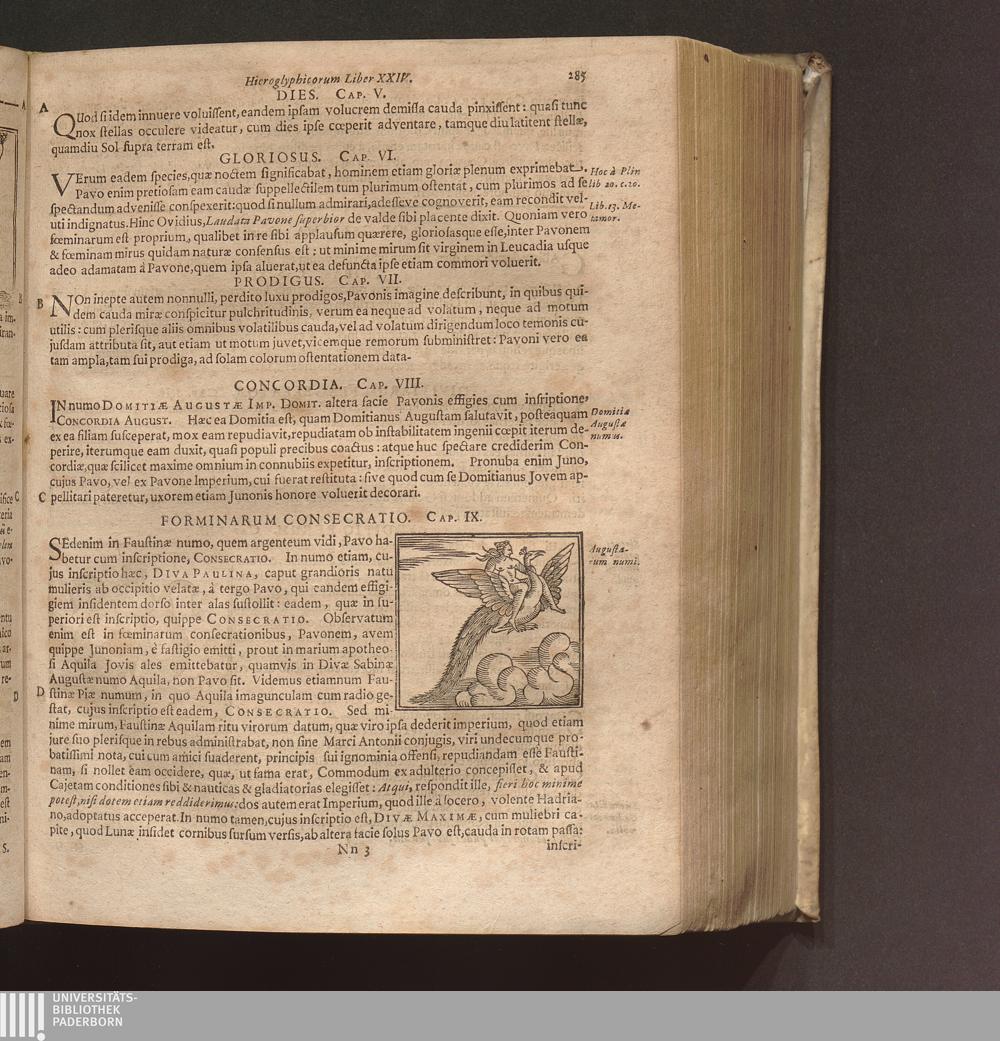 Hieroglyphicorum Liber XXIV. 285
DIES. CAP. V.
A
QUod si idem innuere voluissent, eandem ipsam volucrem demissa cauda pinxissent: quasi tunc
nox stellas occulere videatur, cum dies ipse cœperit adventare, tamque diu latitent stellæ,
quamdiu Sol supra terram est.
GLORIOSUS. CAP. VI.
VErum eadem species, quæ noctem significabat, hominem etiam gloriæ plenum exprimebat.
Pavo enim pretiosam eam caudæ suppellectilem tum plurimum ostentat, cum plurimos ad se
spectandum advenisse conspexerit: quod si nullum admirari, adesseve cognoverit, eam recondit vel-
uti indignatus. Hinc Ovidius, Laudata Pavone superbior de valde sibi placente dixit. Quoniam vero
fœminarum est proprium, qualibet in re sibi applausum quærere, gloriosasque esse, inter Pavonem
& fœminam mirus quidam naturæ consensus est: ut minime mirum sit virginem in Leucadia usque
adeo adamatam à Pavone, quem ipsa aluerat, ut ea defuncta ipse etiam commori voluerit.
Hoc à Plin
lib 20. c.20.
Lib. 13. Me-
tamor.
PRODIGUS. CAP. VII.
B
NOn inepte autem nonnulli, perdito luxu prodigos, Pavonis imagine describunt, in quibus qui-
dem cauda miræ conspicitur pulchritudinis, verum ea neque ad volatum, neque ad motum
utilis: cum plerisque aliis omnibus volatilibus cauda, vel ad volatum dirigendum loco temonis cu-
jusdam attributa sit, aut etiam ut motum juvet, vicemque remorum subministret: Pavoni vero ea
tam ampla, tam sui prodiga, ad solam colorum ostentationem data-
CONCORDIA. CAP. VIII.
IN numo DOMITIÆ AUGUSTÆ IMP. DOMIT. altera facie Pavonis effigies cum insriptione,
CONCORDIA AUGUST. Hæc ea Domitia est, quam Domitianus Augustam salutavit, posteaquam
ex ea filiam susceperat, mox eam repudiavit, repudiatam ob instabilitatem ingenii cœpit iterum de-
perire, iterumque eam duxit, quasi populi precibus coactus: atque huc spectare crediderim Con-
cordiæ, quæ scilicet maxime omnium in connubiis expetitur, inscriptionem. Pronuba enim Juno,
cujus Pavo, vel ex Pavone Imperium, cui fuerat restituta: sive quod cum se Domitianus Jovem ap-
C pellitari pateretur, uxorem etiam Junonis honore voluerit decorari.
Domitiæ
Augustæ
numus.
FORMINARUM CONSECRATIO. CAP. IX.
SEdenim in Faustinæ numo, quem argenteum vidi, Pavo ha-
betur cum inscriptione, CONSECRATIO. In numo etiam, cu-
jus inscriptio hæc, DIVA PAULINA, caput grandioris natu
mulieris ab occipitio velatæ, à tergo Pavo, qui eandem effigi-
giem insidentem dorso inter alas sustollit: eadem, quæ in su-
periori est inscriptio, quippe CONSECRATIO. Observatum
enim est in fœminarum consecrationibus, Pavonem, avem
quippe Junoniam, è fastigio emitti, prout in marium apotheo
si Aquila Jovis ales emittebatur, quamvis in Divæ Sabinæ
Augustæ numo Aquila, non Pavo sit. Videmus etiamnum Fau-
D stinæ Piæ numum, in quo Aquila imagunculam cum radio ge-
stat, cujus inscriptio est eadem, CONSECRATIO. Sed mi-
nime mirum, Faustinæ Aquilam ritu virorum datum, quæ viro ipsa dederit imperium, quod etiam
jure suo plerisque in rebus administrabat, non sine Marci Antonii conjugis, viri undecumque pro-
batissimi nota, cui cum amici suaderent, principis sui ignominia offensi, repudiandam esse Fausti-
nam, si nollet eam occidere, quæ, ut fama erat, Commodum ex adulterio concepisset, & apud
Cajetam conditiones sibi & nauticas & gladiatorias elegisset: Atqui, respondit ille, fieri hoc minime
potest, nisi dotem etiam reddiderimus: dos autem erat Imperium, quod ille à socero, volente Hadria-
no, adoptatus acceperat. In numo tamen, cujus inscriptio est, DIVÆ MAXIMÆ, cum muliebri ca-
pite, quod Lunæ insidet cornibus sursum versis, ab altera facie solus Pavo est, cauda in rotam passa:
Augusta-
rum numi.
Nn 3 inscri-
UNIVERSITÄTS-
BIBLIOTHEK
PADERBORN